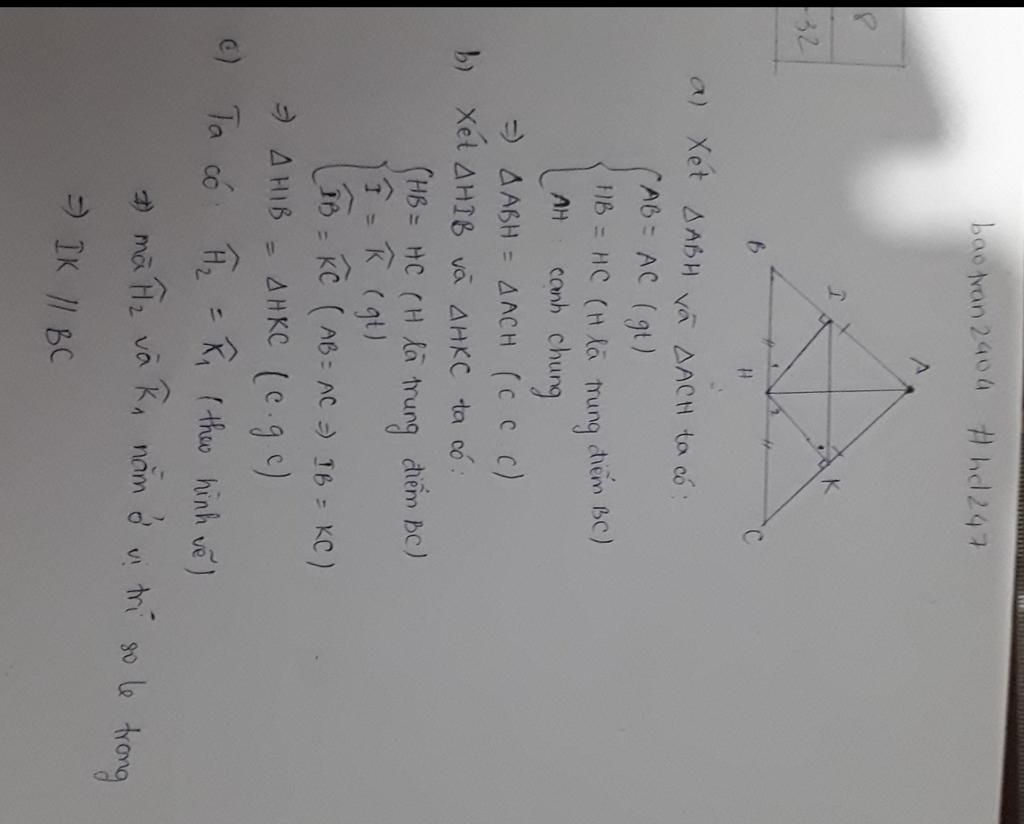 baotran2404 #hd247
8
-32
A
I
K
B
H
2
C
a) Xét ΔABH và ΔACH ta có:
AB = AC (gt)
HB = HC (H là trung điểm BC)
AH: cạnh chung
⇒ ΔABH = ΔACH (c c c)
b) Xét ΔHIB và ΔHKC ta có:
HB = HC (H là trung điểm BC)
Î = K̂ (gt)
IB̂ = KĈ (AB = AC ⇒ IB = KC)
⇒ ΔHIB = ΔHKC (c.g c)
c) Ta có: Ĥ₂ = K̂₁ (theo hình vẽ)
⇒ mà Ĥ₂ và K̂₁ nằm ở vị trí so le trong
⇒ IK // BC